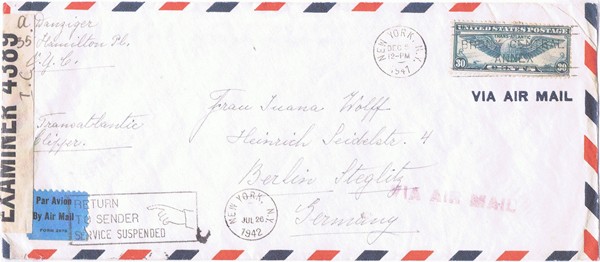 A. Danziger
55 Hamilton Pl.
N.Y.C.
EXAMINER 4389
I.C.
Transatlantic
Clipper.
NEW YORK, N.Y.
DEC 6
12-PM
1941
UNITED STATES POSTAGE
TRANS-ATLANTIC
ANNEX
30 CENTS 30
VIA AIR MAIL
Frau Luana Wolff
Heinrich Seidelstr. 4
Berlin Steglitz
Germany
VIA AIR MAIL
Par Avion
By Air Mail
RETURN
TO SENDER
SERVICE SUSPENDED
NEW YORK, N.Y.
JUL 20
1942